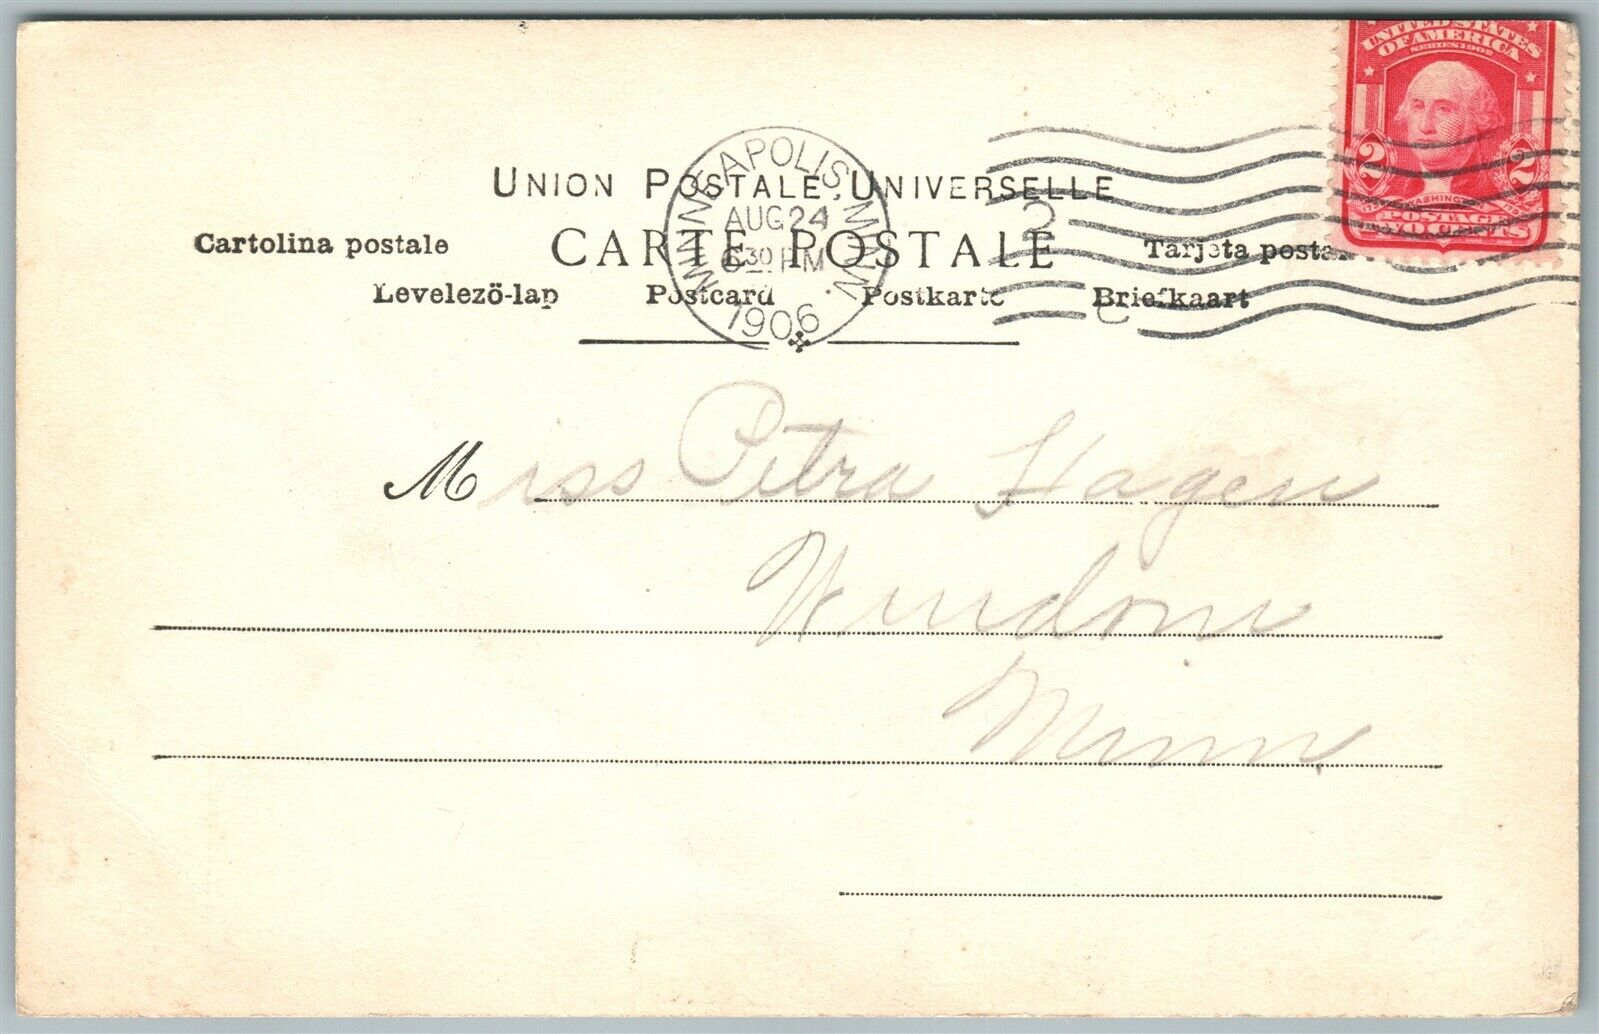 UNITED STATES
OF AMERICA
SERIES 1902
2 2
POSTAGE
UNION POSTALE UNIVERSELLE
MINNEAPOLIS, MINN.
AUG 24
30 PM
1906
CARTE POSTALE
Cartolina postale
Tarjeta posta
Levelező-lap Postcard Postkarte Briefkaart
Miss Petra Hagen
Windom
Minn.